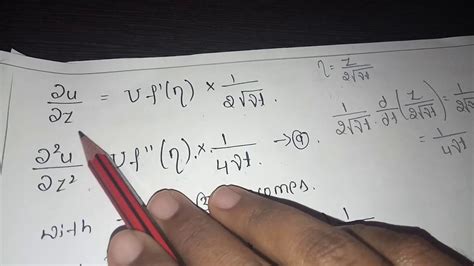 ∂u/∂z = U f'(η) × 1/(2√(νt))
η = z/(2√(νt))
1/(2√(νt)) d/dt (z/(2√(νt)))
= 1/(4νt)
∂²u/∂z² U f''(η) . × . 1/(4νt) → ④
with
comes